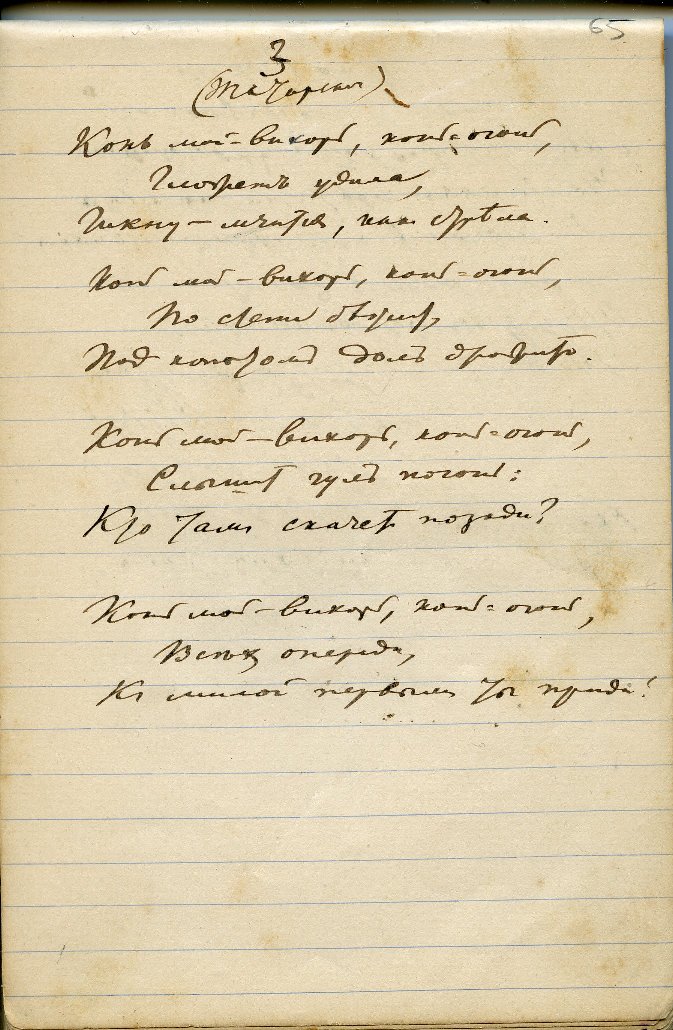 65
3
(Татарская)
Конь мой – вихорь, конь-огонь,
Гложетъ удила,
Гикну – мчится, как стрѣла.
Конь мой – вихорь, конь-огонь,
По степи бѣжит,
Под копытомъ долъ дрожитъ.
Конь мой – вихорь, конь-огонь,
Слышит гулъ погони:
Кто тамъ скачет позади?
Конь мой – вихорь, конь-огонь,
Всѣхъ опереди,
Къ милой первымъ ты приди!